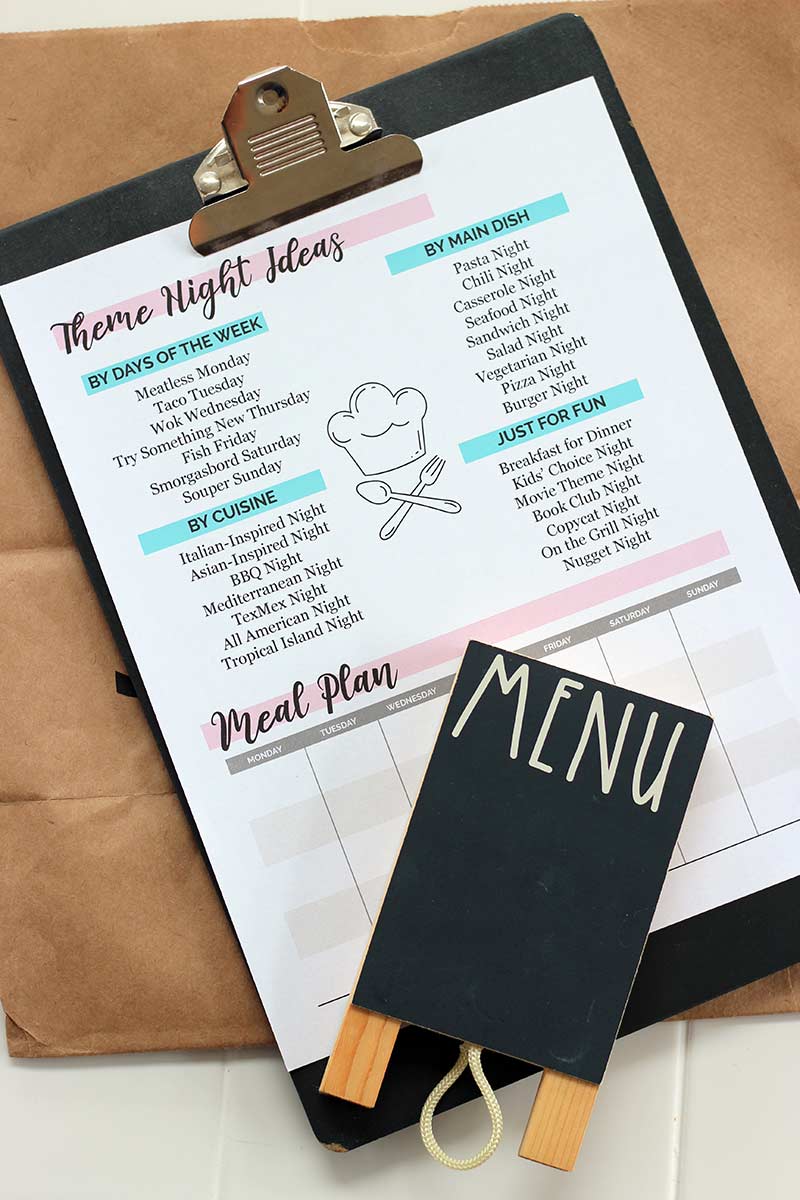 Theme Night Ideas
BY DAYS OF THE WEEK
Meatless Monday
Taco Tuesday
Wok Wednesday
Try Something New Thursday
Fish Friday
Smorgasbord Saturday
Souper Sunday
BY CUISINE
Italian-Inspired Night
Asian-Inspired Night
BBQ Night
Mediterranean Night
TexMex Night
All American Night
Tropical Island Night
BY MAIN DISH
Pasta Night
Chili Night
Casserole Night
Seafood Night
Sandwich Night
Salad Night
Vegetarian Night
Pizza Night
Burger Night
JUST FOR FUN
Breakfast for Dinner
Kids' Choice Night
Movie Theme Night
Book Club Night
Copycat Night
On the Grill Night
Nugget Night
Meal Plan
MONDAY TUESDAY WEDNESDAY FRIDAY SATURDAY SUNDAY
MENU